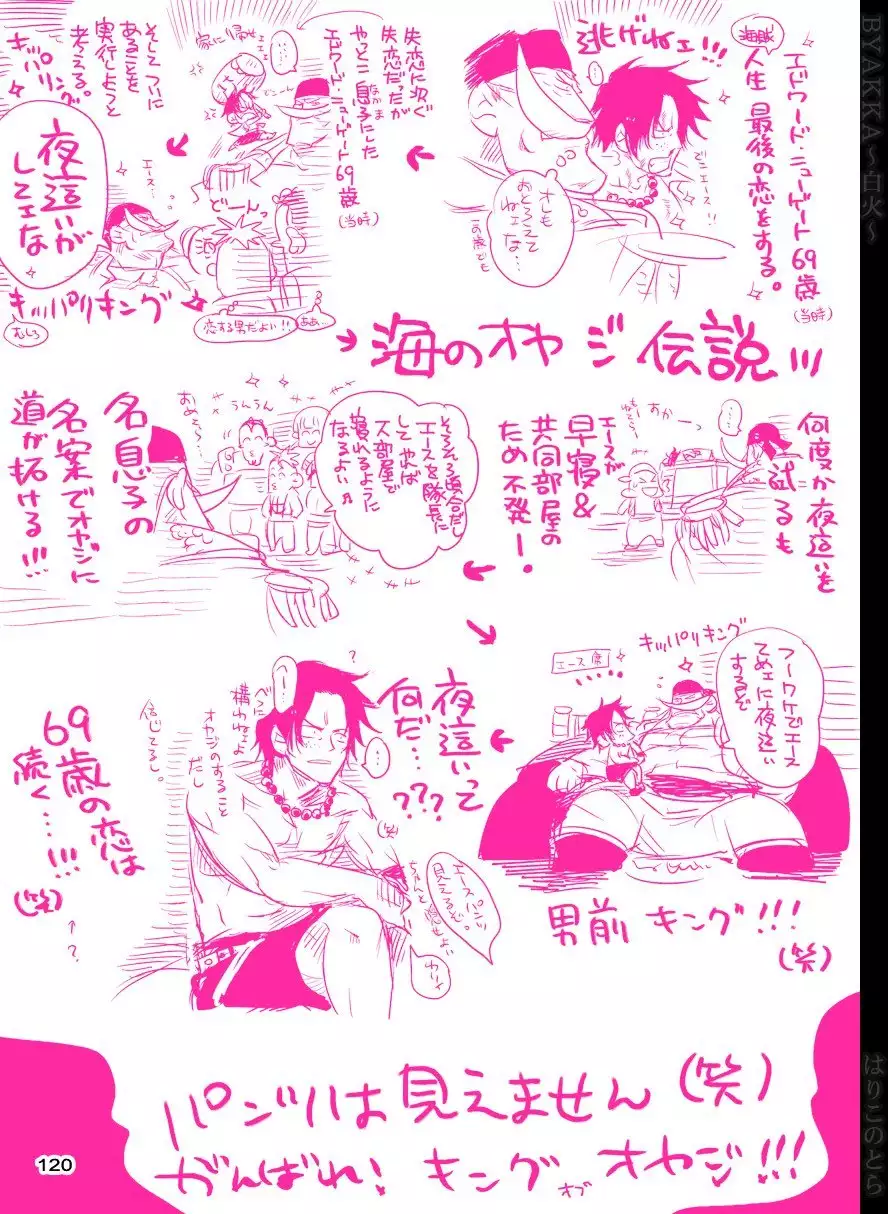 BYAKKA~白火~
はりこのとら
海賊
エドワード・ニューゲート69歳
(当時)
人生最後の恋をする。
逃げねェ!!!
でこエース!!
オレも
おとろえて
ねェな…
この歳でも
失恋に次ぐ
失恋だったが
やっとこ息子にした
エドワード・ニューゲート69歳
(当時)
家に帰せェェェ
どーんっ
そしてついに
あることを
実行しようと
考える。
キッパリング。
夜這いが
してェな
エース…
キッパリキング
むしろ
恋する男だよい!!
ああ…
海のオヤジ伝説!!!
何度か夜這いを
試るも
エースが
早寝&
共同部屋の
ため不発ー!
そろそろ頃合だし
エースを隊長に
してやれば
一人部屋で
寝れるように
なるよい♪
うんうん
名息子の
名案でオヤジに
道が拓ける!!!
キッパリキング
エース席
フーワケでエース
てめェに夜這い
するぞ
男前キング!!!
(笑)
夜這いって
何だ…
???
(笑)
べつに
構わねェよ
オヤジのすること
だし
信じてるし。
エースパンツ
見えるぞ。
ちゃんと隠せよい
69歳の恋は
続く…!!!
(笑)
←?
パンツは見えません(笑)
がんばれ!キングオブオヤジ!!!
120